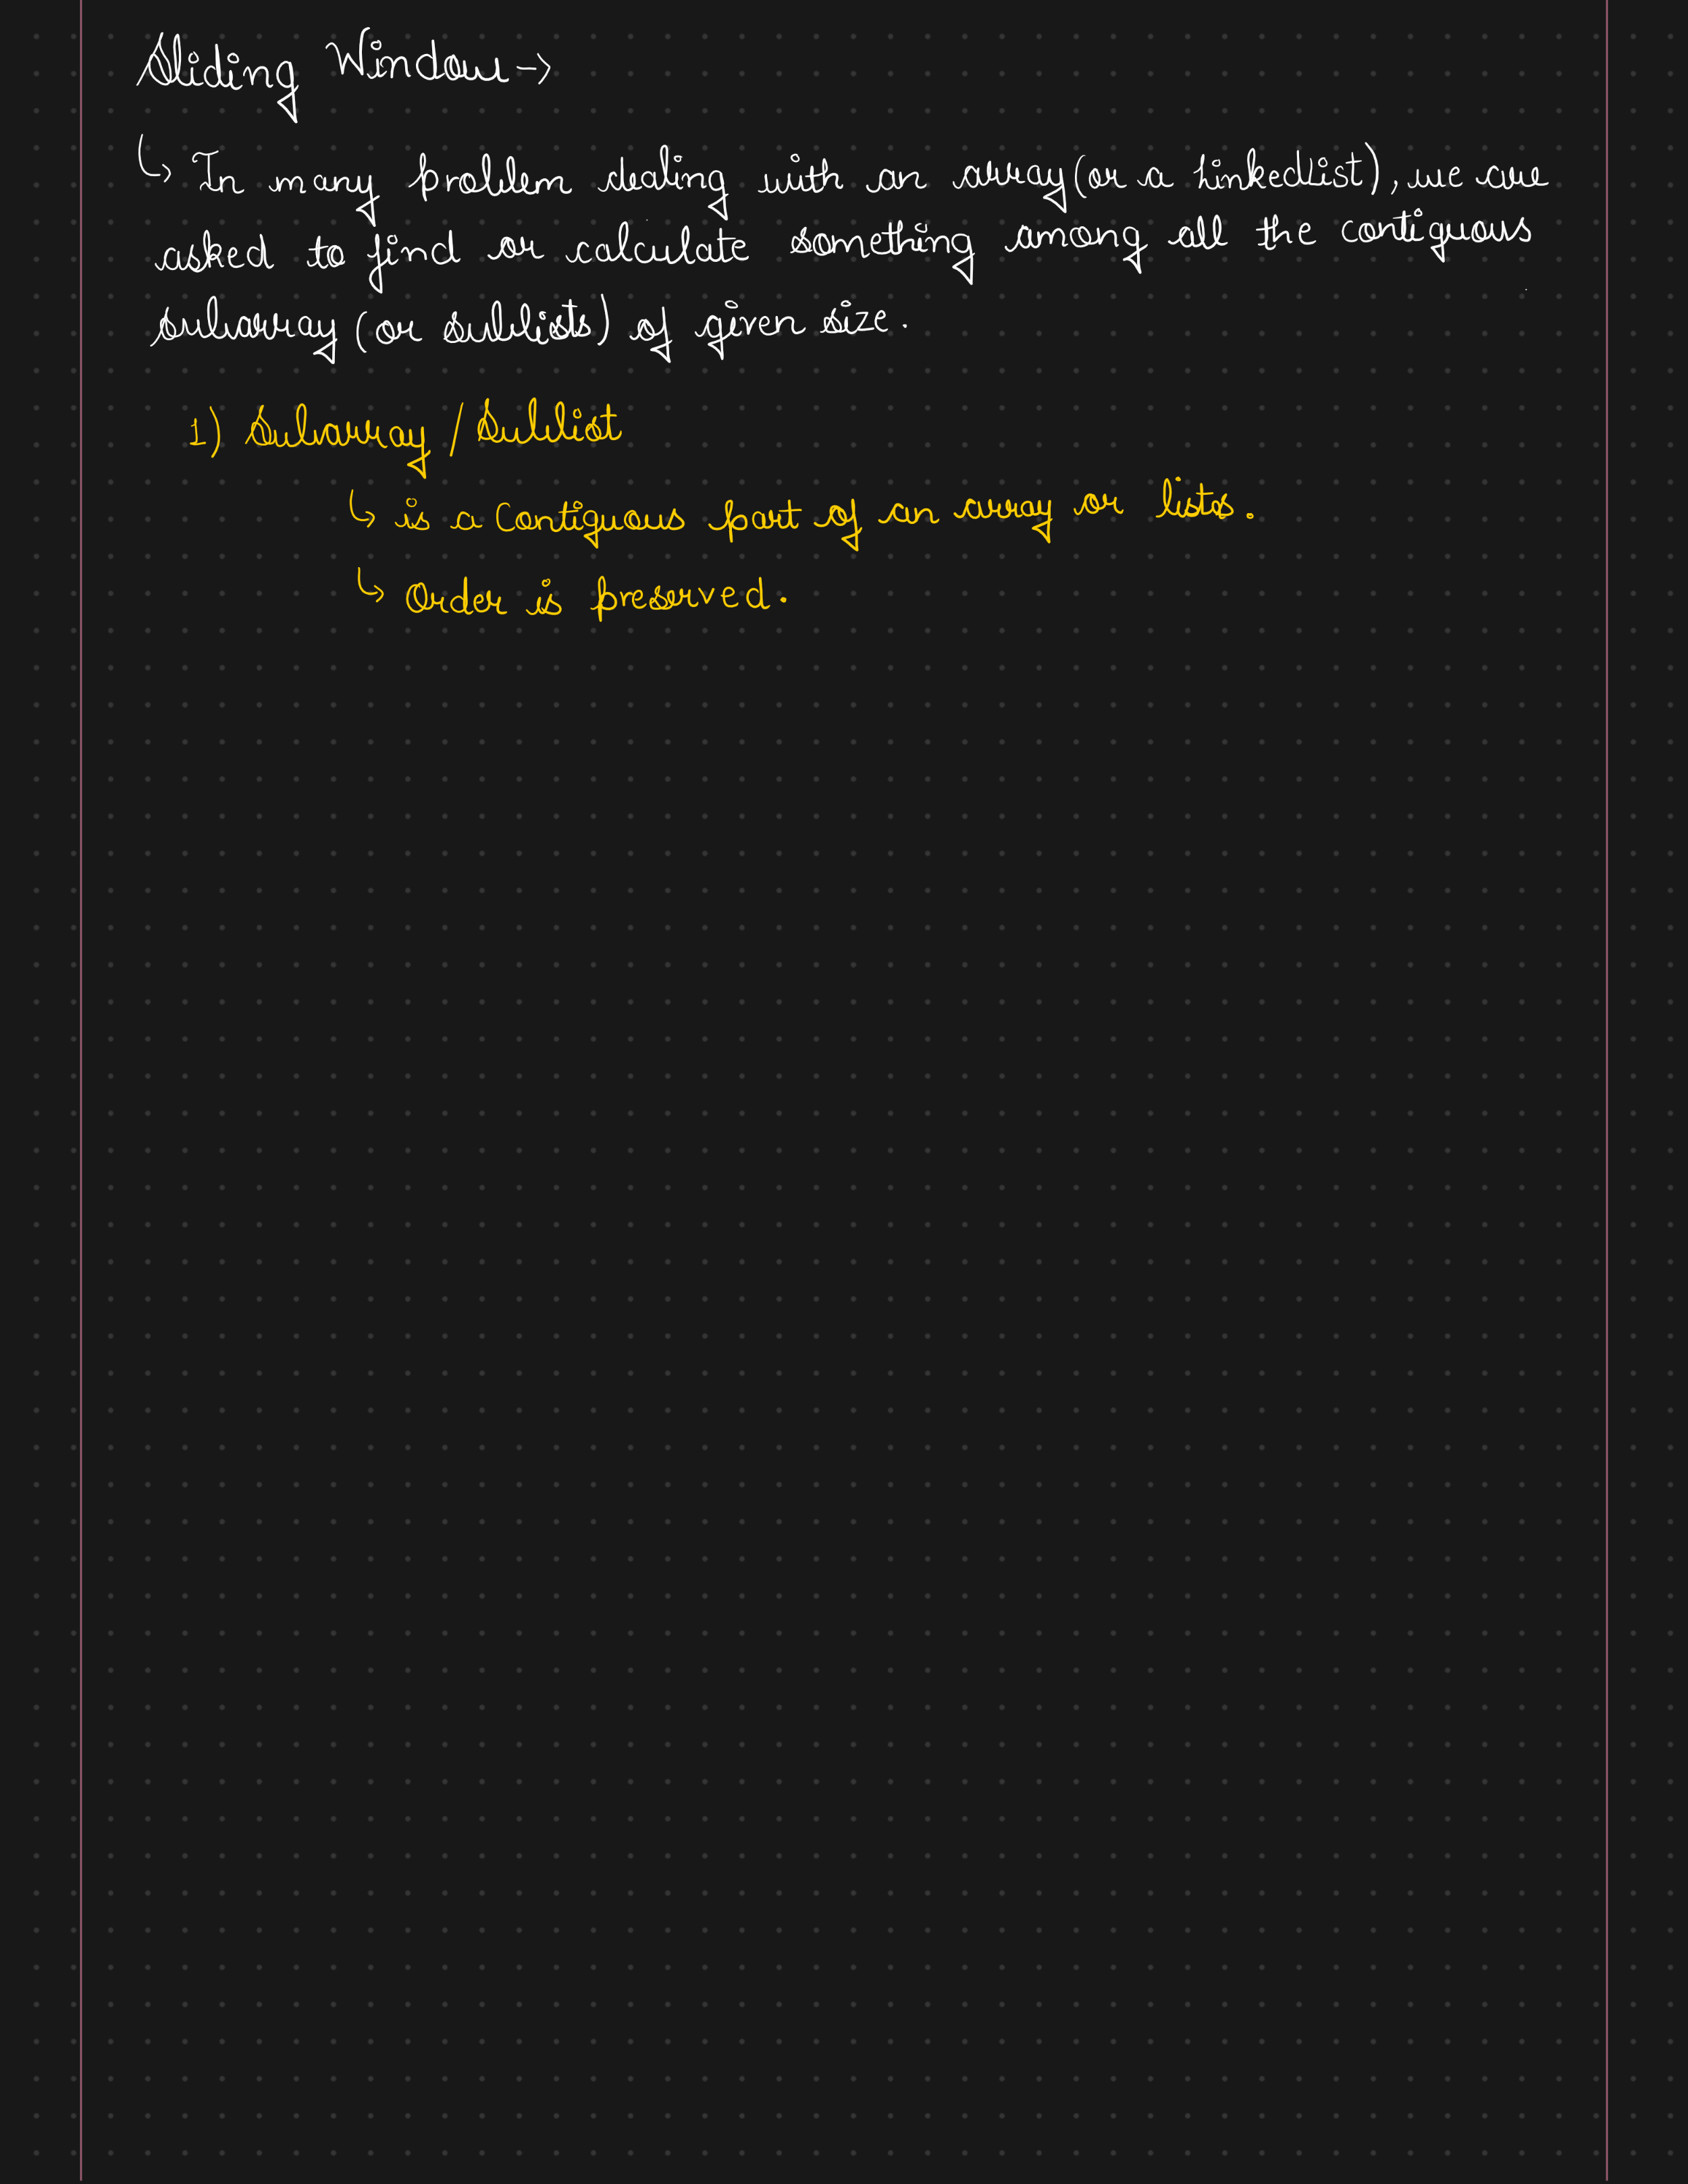 Sliding Window ->
↳ In many problem dealing with an array (or a LinkedList), we are
asked to find or calculate something among all the contiguous
subarray (or sublists) of given size.
1) Subarray / Sublist
↳ is a Contiguous part of an array or lists.
↳ Order is preserved.